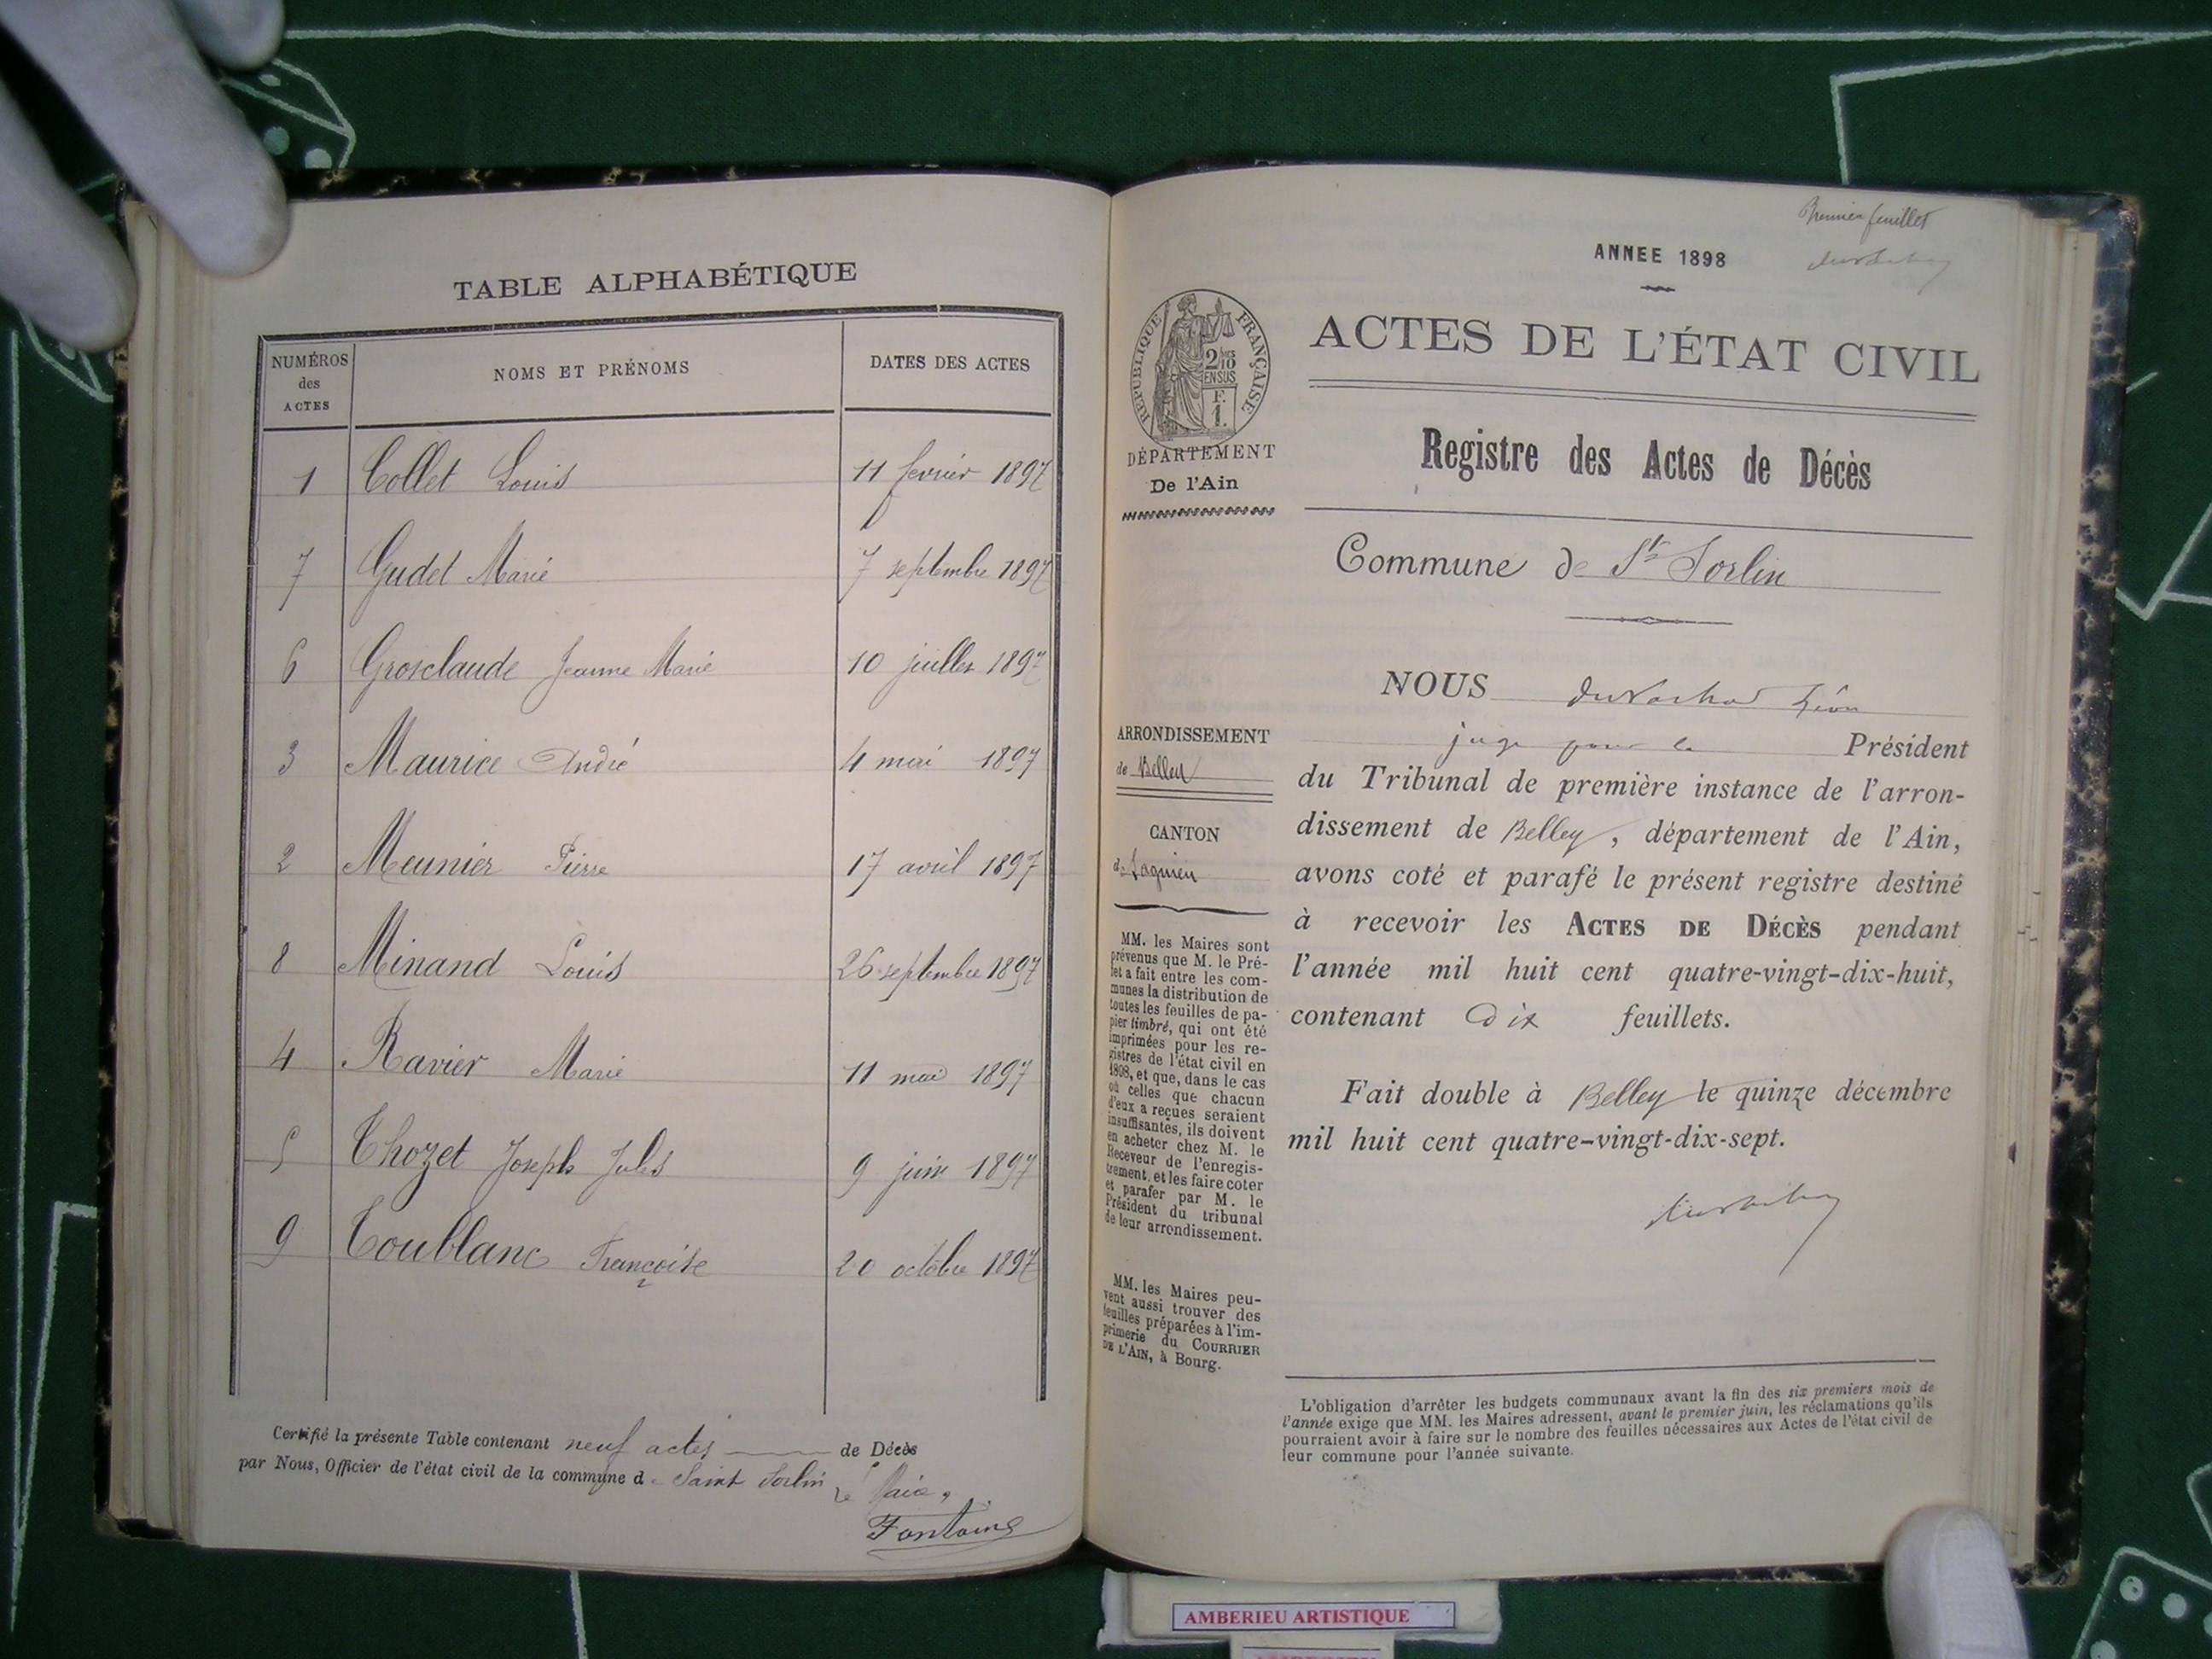 TABLE ALPHABÉTIQUE
NUMÉROS
des
ACTES
NOMS ET PRÉNOMS
DATES DES ACTES
1 Collet Louis 11 fevrier 1897
7 Gudet Marie 7 septembre 1897
6 Grosclaude Jeanne Marie 10 juillet 1897
3 Maurice André 4 mai 1897
2 Meunier Pierre 17 avril 1897
8 Minand Louis 26 septembre 1897
4 Ravier Marie 11 mai 1897
5 Thozet Joseph Jules 9 juin 1897
9 Toublanc Françoise 20 octobre 1897
Certifié la présente Table contenant neuf actes de Décès
par Nous, Officier de l'état civil de la commune de Saint Sorlin
Le Maire,
Fontaine
Premier feuillet
ANNEE 1898
RÉPUBLIQUE FRANÇAISE
2/10
EN SUS
F.
1.
DÉPARTEMENT
De l'Ain
ARRONDISSEMENT
de Belley
CANTON
de Lagnieu
MM. les Maires sont
prévenus que M. le Pré-
fet a fait entre les com-
munes la distribution de
toutes les feuilles de pa-
pier timbré, qui ont été
imprimées pour les re-
gistres de l'état civil en
1898, et que, dans le cas
où celles que chacun
d'eux a reçues seraient
insuffisantes, ils doivent
en acheter chez M. le
Receveur de l'enregis-
trement, et les faire coter
et parafer par M. le
Président du tribunal
de leur arrondissement.
MM. les Maires peu-
vent aussi trouver des
feuilles préparées à l'im-
primerie du COURRIER
DE L'AIN, à Bourg.
ACTES DE L'ÉTAT CIVIL
Registre des Actes de Décès
Commune de St Sorlin
NOUS Léon
juge pour le Président
du Tribunal de première instance de l'arron-
dissement de Belley, département de l'Ain,
avons coté et parafé le présent registre destiné
à recevoir les ACTES DE DÉCÈS pendant
l'année mil huit cent quatre-vingt-dix-huit,
contenant Dix feuillets.
Fait double à Belley le quinze décembre
mil huit cent quatre-vingt-dix-sept.
L'obligation d'arrêter les budgets communaux avant la fin des six premiers mois de
l'année exige que MM. les Maires adressent, avant le premier juin, les réclamations qu'ils
pourraient avoir à faire sur le nombre des feuilles nécessaires aux Actes de l'état civil de
leur commune pour l'année suivante.
AMBERIEU ARTISTIQUE